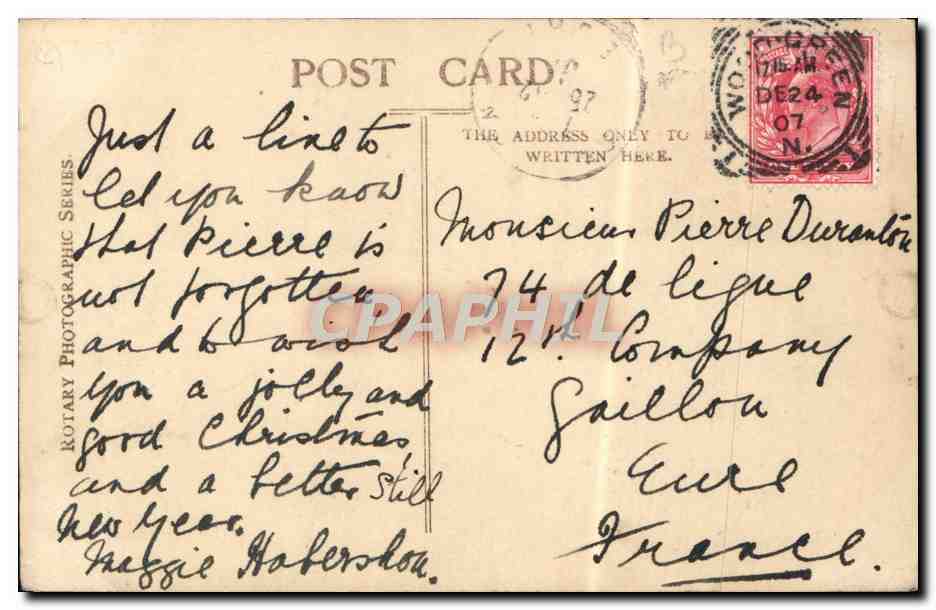 POST CARD
THE ADDRESS ONLY TO BE
WRITTEN HERE.
ROTARY PHOTOGRAPHIC SERIES.
WOOD-GREEN
7.15 AM
DE 24
07
N.
Just a line to
let you know
that Pierre is
not forgotten
and to wish
you a jolly and
good Christmas,
and a better still
New Year.
Maggie Habershon.
Monsieur Pierre Duranton
74 de ligne
12th. Company
Gaillon
Eure
France.
CPAPHIL